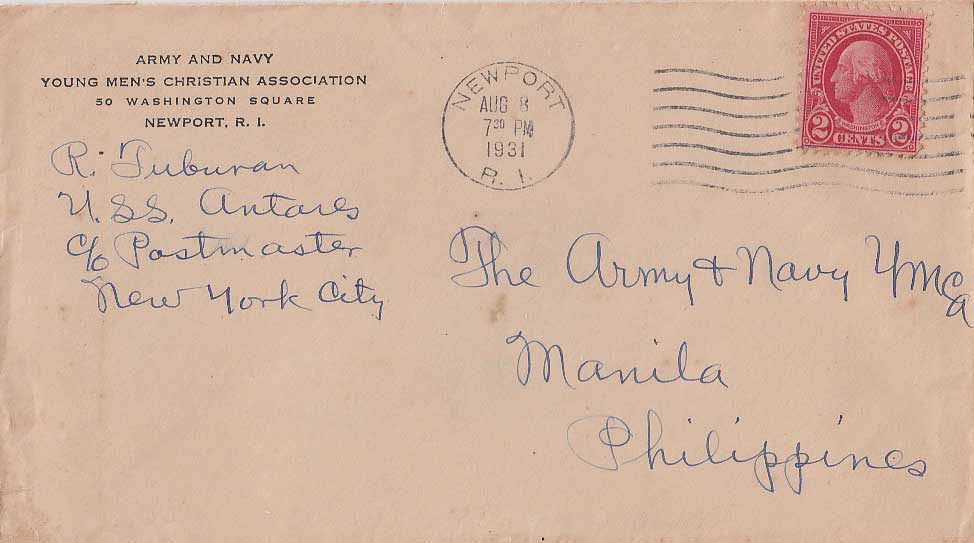 ARMY AND NAVY
YOUNG MEN'S CHRISTIAN ASSOCIATION
50 WASHINGTON SQUARE
NEWPORT, R. I.
R. Tuburan
U.S.S. Antares
c/o Postmaster
New York City
NEWPORT
AUG 8
7 30 PM
1931
R. I.
UNITED STATES POSTAGE
WASHINGTON
2 CENTS 2
The Army & Navy YMCA
Manila
Philippines